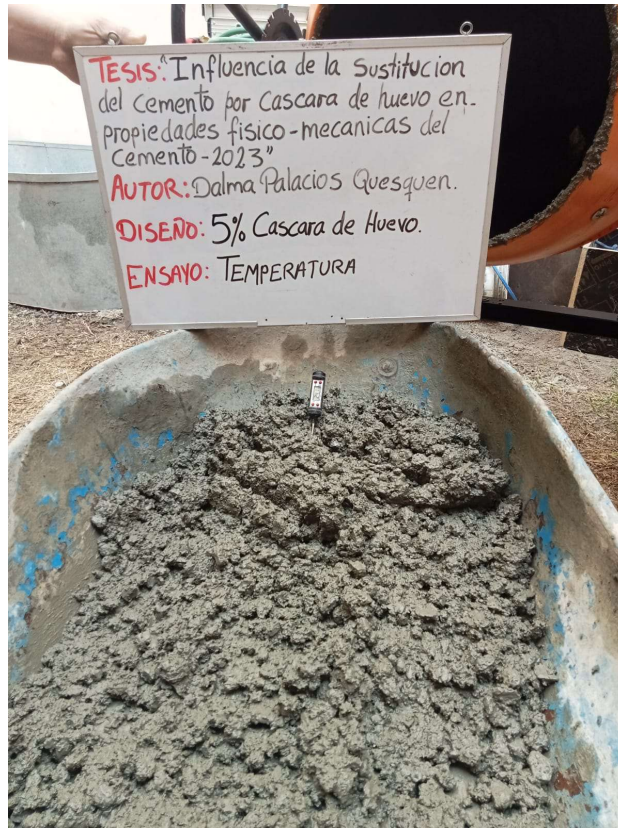 TESIS: "Influencia de la Sustitucion
del Cemento por Cascara de huevo en-
propiedades fisico-mecanicas del
Cemento-2023"
AUTOR: Dalma Palacios Quesquen.
DISEÑO: 5% Cascara de Huevo.
ENSAYO: TEMPERATURA